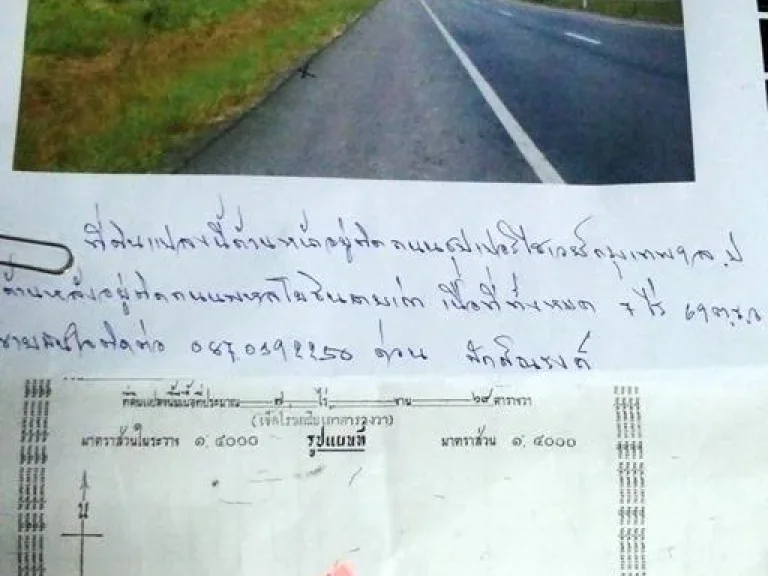 ที่ดินแปลงนี้ด้านหน้าอยู่ติดถนนซุปเปอร์ไฮเวย์กรุงเทพฯ ล.ป
ด้านหลังอยู่ติดถนนพหลโยธินสายเก่า เนื้อที่ทั้งหมด 7 ไร่ 69 ต.ร.ว
ขายสนใจติดต่อ ด่วน
ที่ดินแปลงนี้มีเนื้อที่ประมาณ ๗ ไร่ งาน ๖๙ ตารางวา
(เจ็ดไร่หกสิบเก้าตารางวา)
มาตราส่วนในระวาง ๑:๔๐๐๐ รูปแผนที่ มาตราส่วน ๑:๔๐๐๐
น